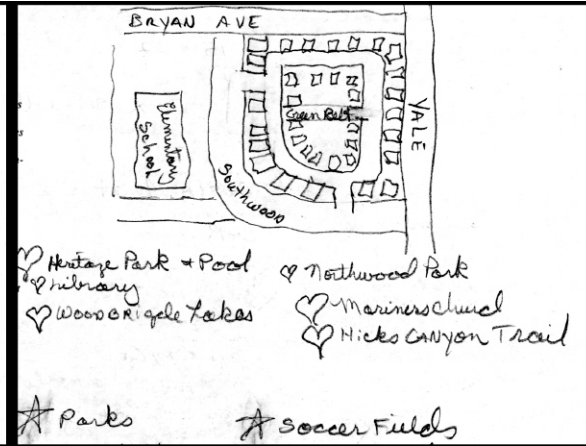 BRYAN AVE
YALE
Elementary
School
Green Belt
Southwood
Heritage Park + Pool
Library
WOODBRIGDE Lakes
Northwood Park
Mariners Church
Hicks CANYON Trail
Parks
Soccer Fields